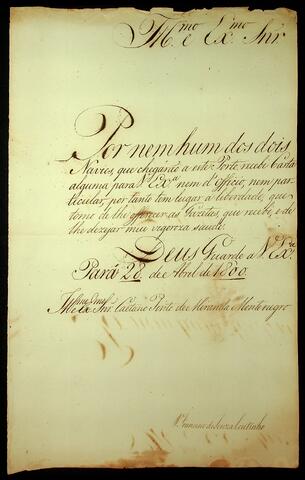 Ill.mo e Ex.mo Snr.
Por nem hum dos dois
Navios, que chegarão a este Porto, recebi Carta
alguma para V. Ex.a nem d'Officio, nem par-
ticular, por tanto tem lugar a liberdade, que
tomo de lhe offerecer as Gazetas, que recebo, e de
lhe dezejar mui vigoroza saude.
Deus Guarde a V. Ex.a
Pará 28 de Abril de 1800.
Ill.mo e Ex.mo Snr. Caetano Pinto de Miranda Montenegro
D. Francisco de Souza Coutinho